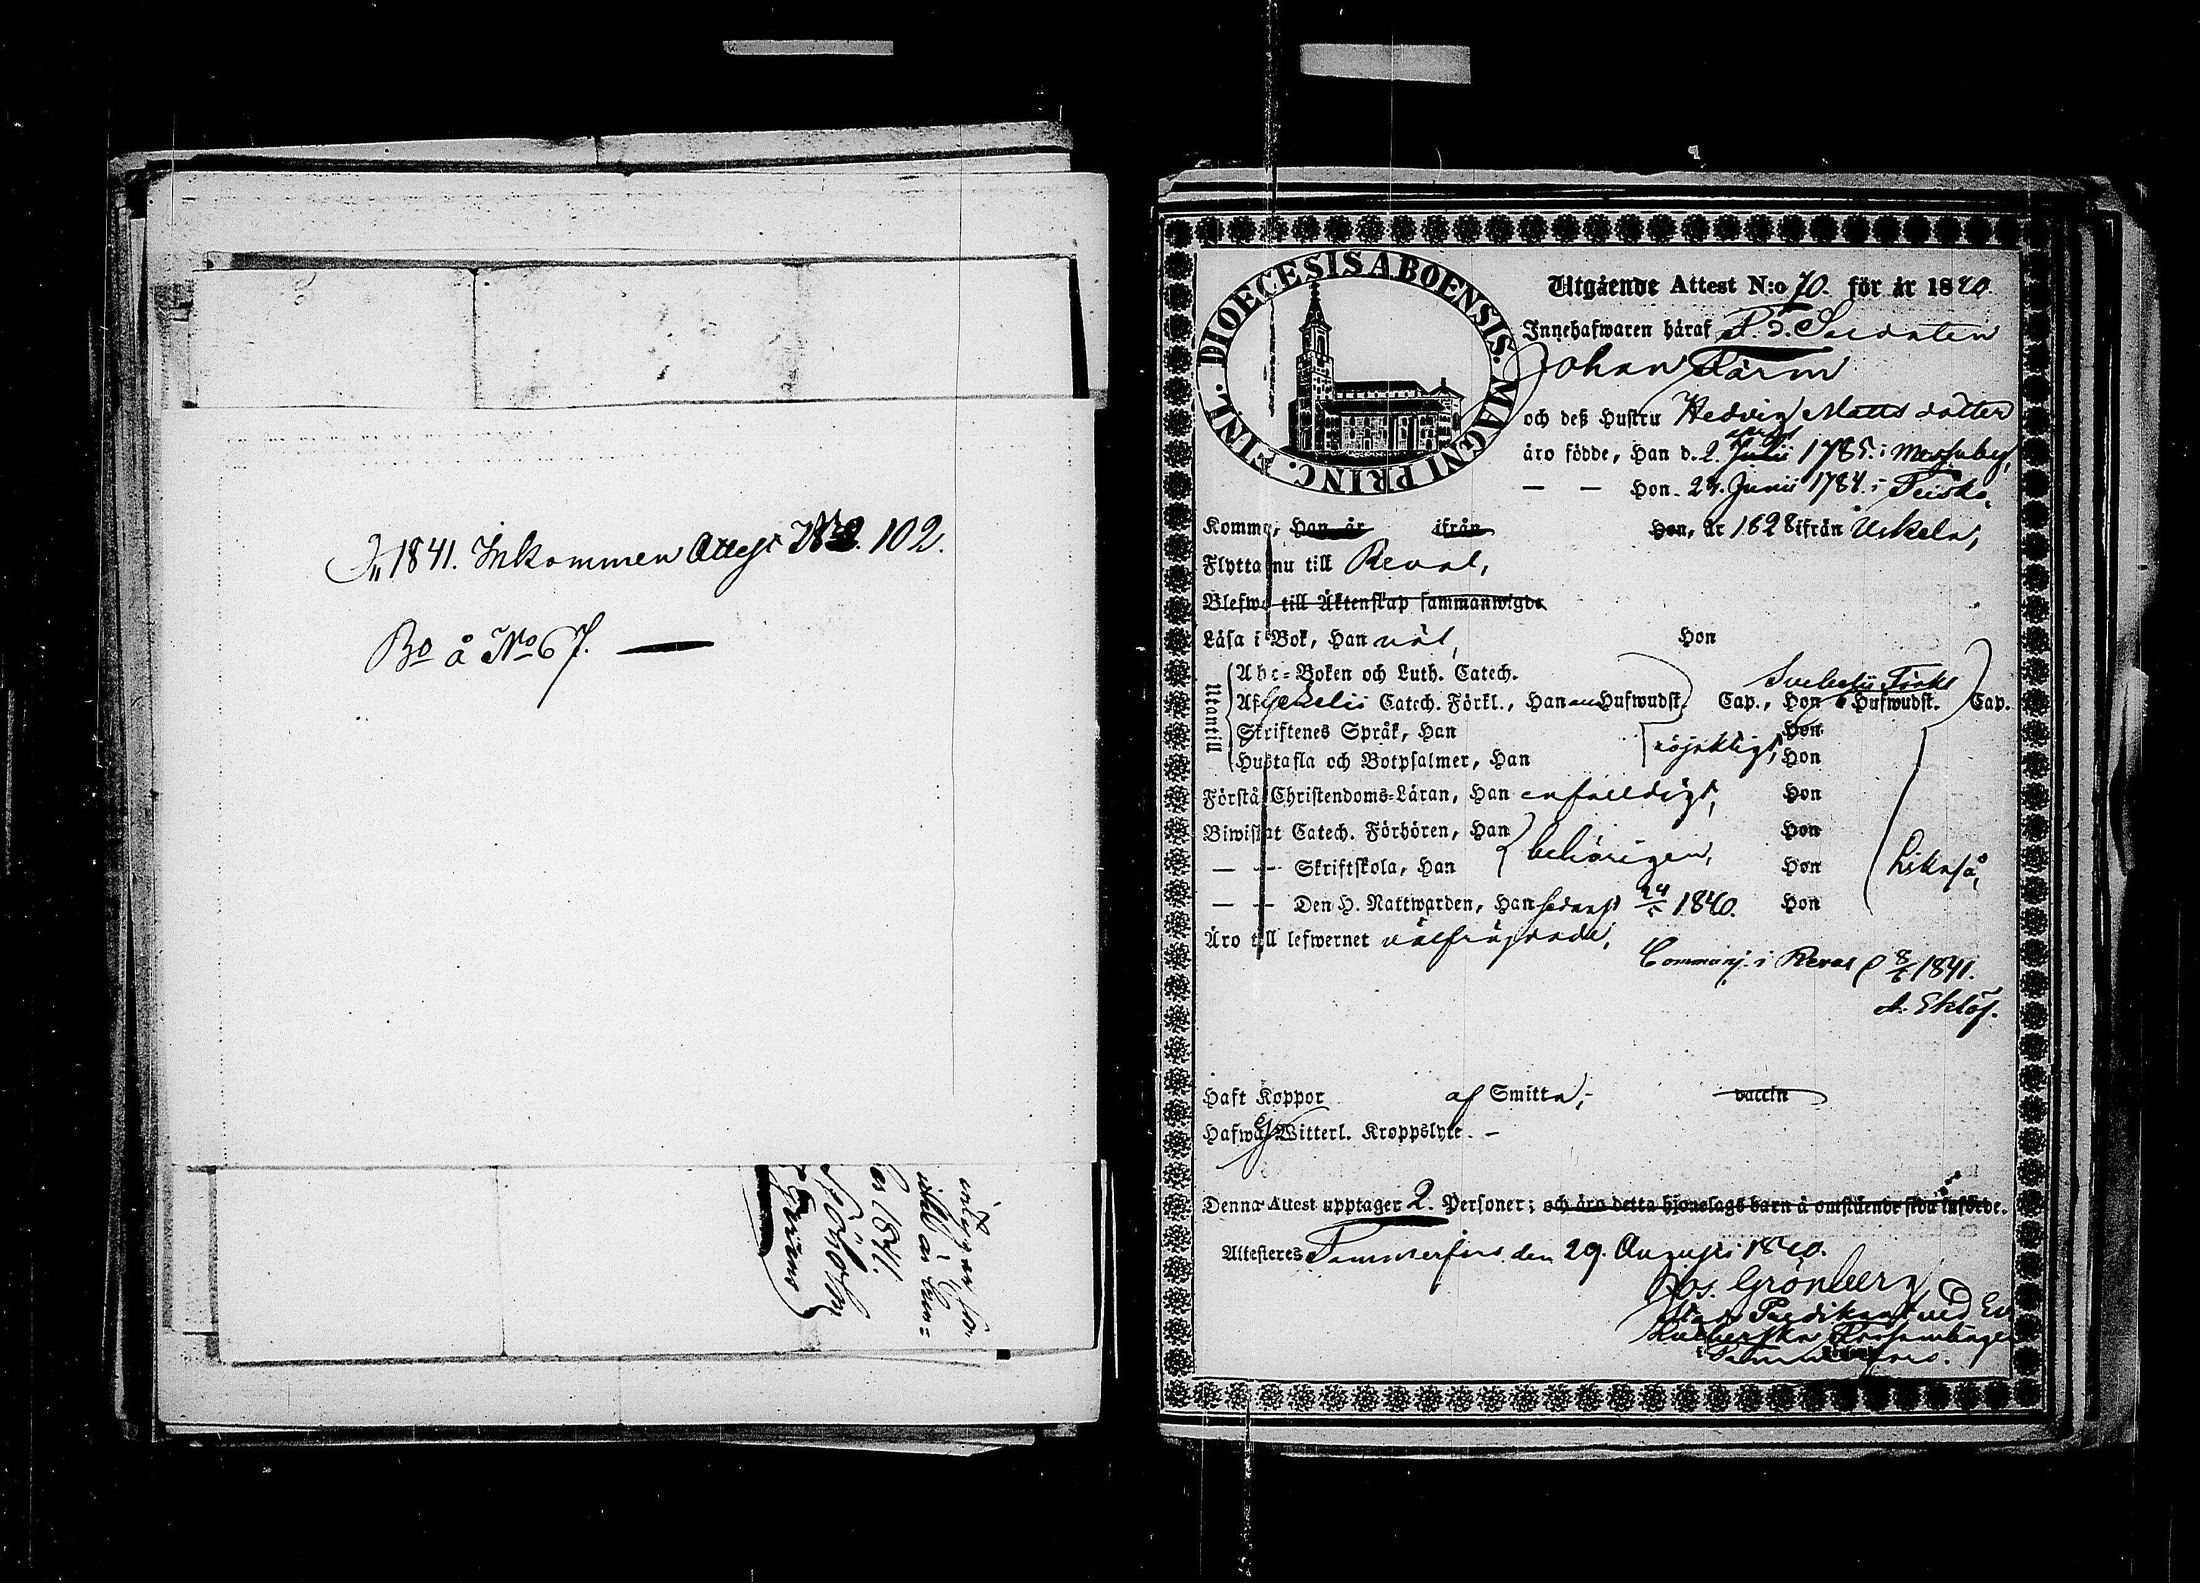 I 1841. Inkommen Attest No. 102.
Bo å No 67.
DIOECESIS ABOENSIS. MAGNI PRINC. FINL.
Utgående Attest N:o 70. för år 1840.
Innehafwaren häraf
Johan
och deß Hustru Hedvig Matts dotter
äro födde, Han d. 2. Julii 1785. i Messuby,
— — Hon. 24. Junii 1784. i
Komma, Han år ifrån Hon, år 1828 ifrån Urkela,
Flytta nu till Reval,
Blefwo till Äktenskap sammanwigde
Läsa i Bok, Han väl, Hon
Utantill
Abc-Boken och Luth. Catech.
Svebelii
Af Gezelii Catech. Förkl., Han Hufwudst. Cap., Hon 6 Hufwudst. Cap.
Skriftenes Språk, Han Hon
Hustafla och Botpsalmer, Han nöjaktigt, Hon
Förstå Christendoms-Läran, Han enfaldigt, Hon
Biwistat Catech. Förhören, Han Hon
— — Skriftskola, Han behörigen, Hon likaså,
— — Den H. Nattwarden, Han sednast 24/5 1840. Hon
Äro till lefwernet välfräjdade,
Communj. i Reval d 8/6 1841.
A. Eklöf.
Haft Koppor af Smitta, vaccin
Hafwa Ej Witterl. Kroppslyte. –
Denna Attest upptager 2. Personer; och äro detta hjonelags barn å omstående sida införde.
Attesteres Tammerfors den 29. Augusti 1840.
Jos. Grönberg
Stads Predikant ved Ev.
Lutherska Församlingen
i Tammerfors.